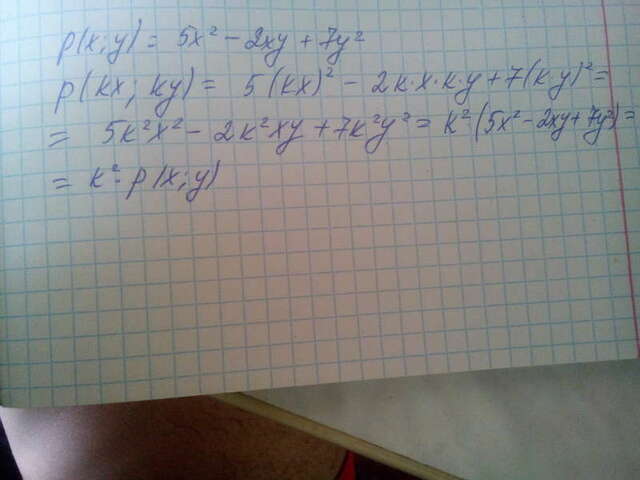 p(x; y) = 5x² - 2xy + 7y²
p(kx; ky) = 5(kx)² - 2k·x·k·y + 7(k·y)² =
= 5k²x² - 2k²xy + 7k²y² = k²·(5x² - 2xy + 7y²) =
= k²·p(x; y)